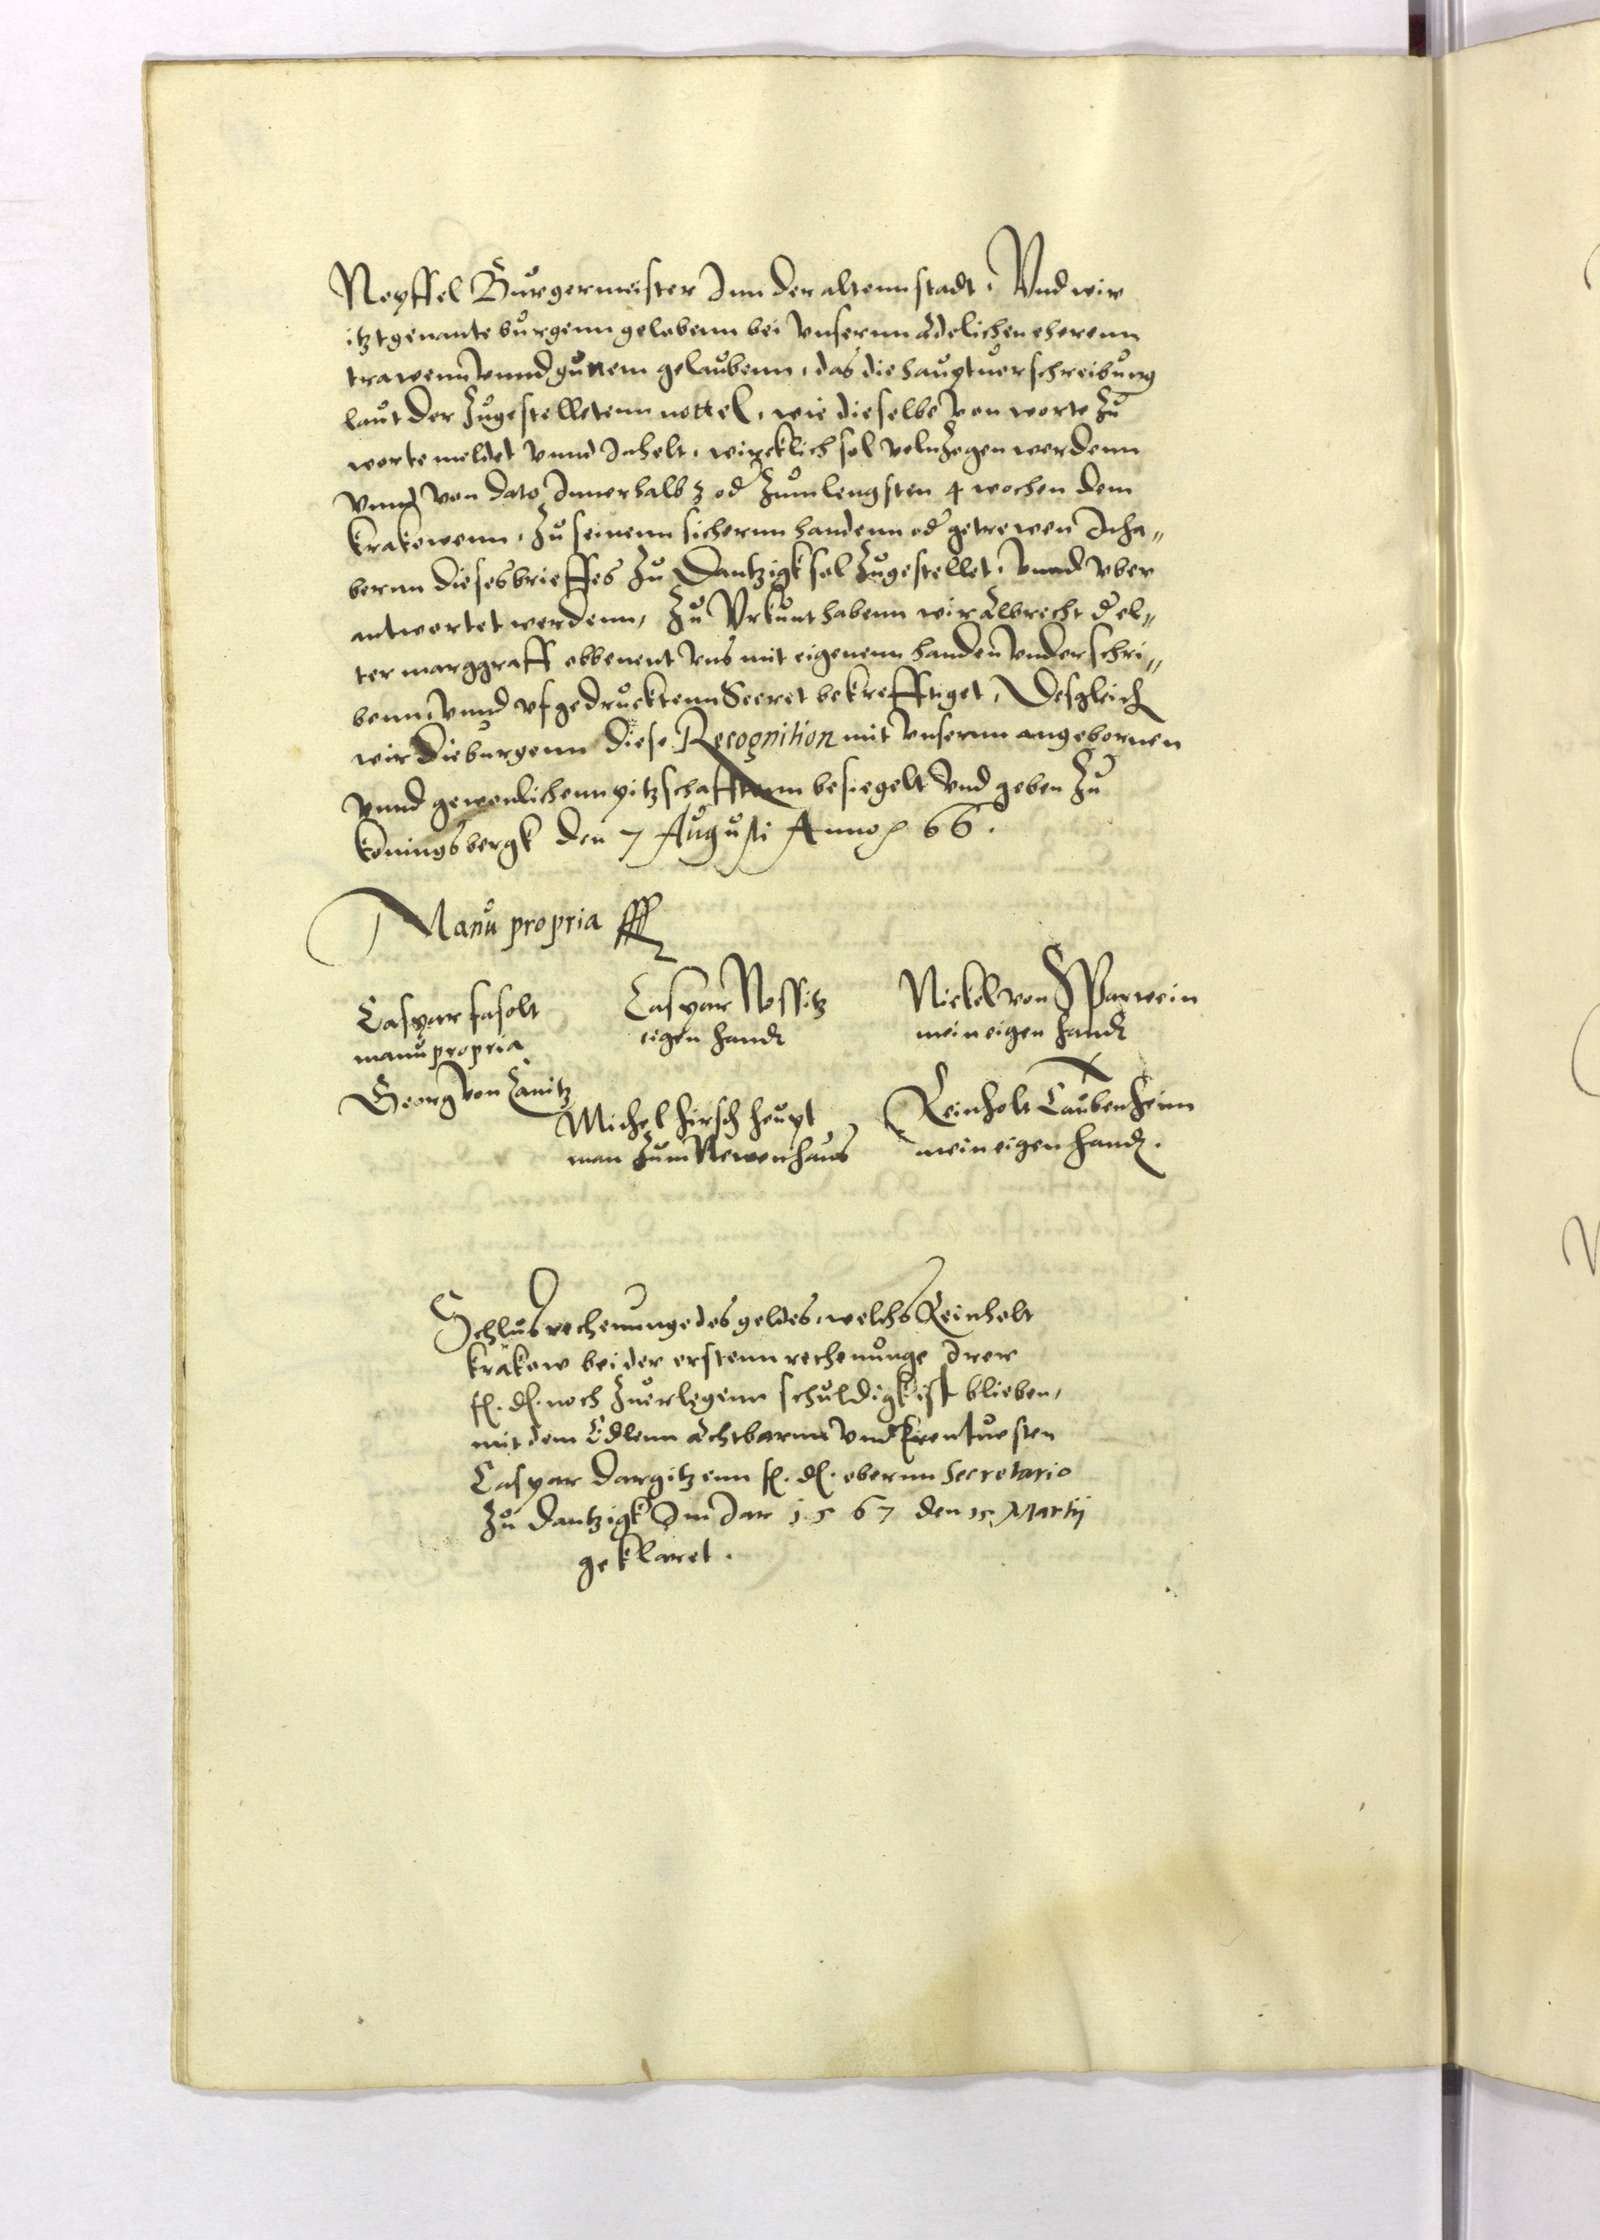 Neyffel Bůrgermeister Inn der altennstadt. Vnd wir
itztgenante bůrgenn gelobenn bei vnsernn Adelichen eherenn
trawenn vnnd gůtem gelaůbenn, das die haůptverschreibůng
laůt der Zůgestelletenn nottel, wie dieselbe von worte Zů
worte meldet vnnd Inhelt, wircklich sol volnZogen werdenn
vnnd von dato Innerhalb 3 od Zům lengsten 4 wochen dem
krakowenn, Zů seinenn sichernn handenn od getrewen Inha"
bernn dieses brieffes Zů Dantzigk sol Zůgestellet, vnnd vber
antwortet werdenn, Zů Vrkůnt habenn wir Albrecht d' el"
ter marggraff obbenent vns mit eigenenn handen vnderschri"
benn, vnnd vfgedrůcktenn Secret bekrefftiget, Desgleich
wir die bůrgenn diese Recognition mit vnsernn angebornen
vnnd gewonlichenn pitzschafftenn besiegelt vnd geben Zů
Konningsbergk den 7 Aůgůsti Anno 66.
Manů propria
Caspar fasolt
manů propria
Caspar Nossitz
eigen handt
Nickel von SParwein
mein eigen handt
Georg von Canitz
Michel hirsch heůpt
man Zům Newenhaůs
Reinholt Taůbenheim
mein eigen handt.
Schlůsrechenunge des geldes, welchs Reinholt
krakow bei der erstenn rechenůnge Irer
fl. dl. noch Zuerlegenn schůldigk ist blieben,
mit dem Edlenn Achtbarnn vnd Erentůesten
Caspar Dargitzenn fl. dl. obernn Secretario
Zů Dantzigk Im Jar 1567 den 15 Martij
geklaret.